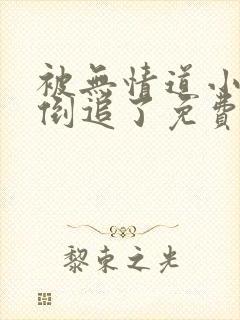 被無情道小
倒追了免費
黎束之光